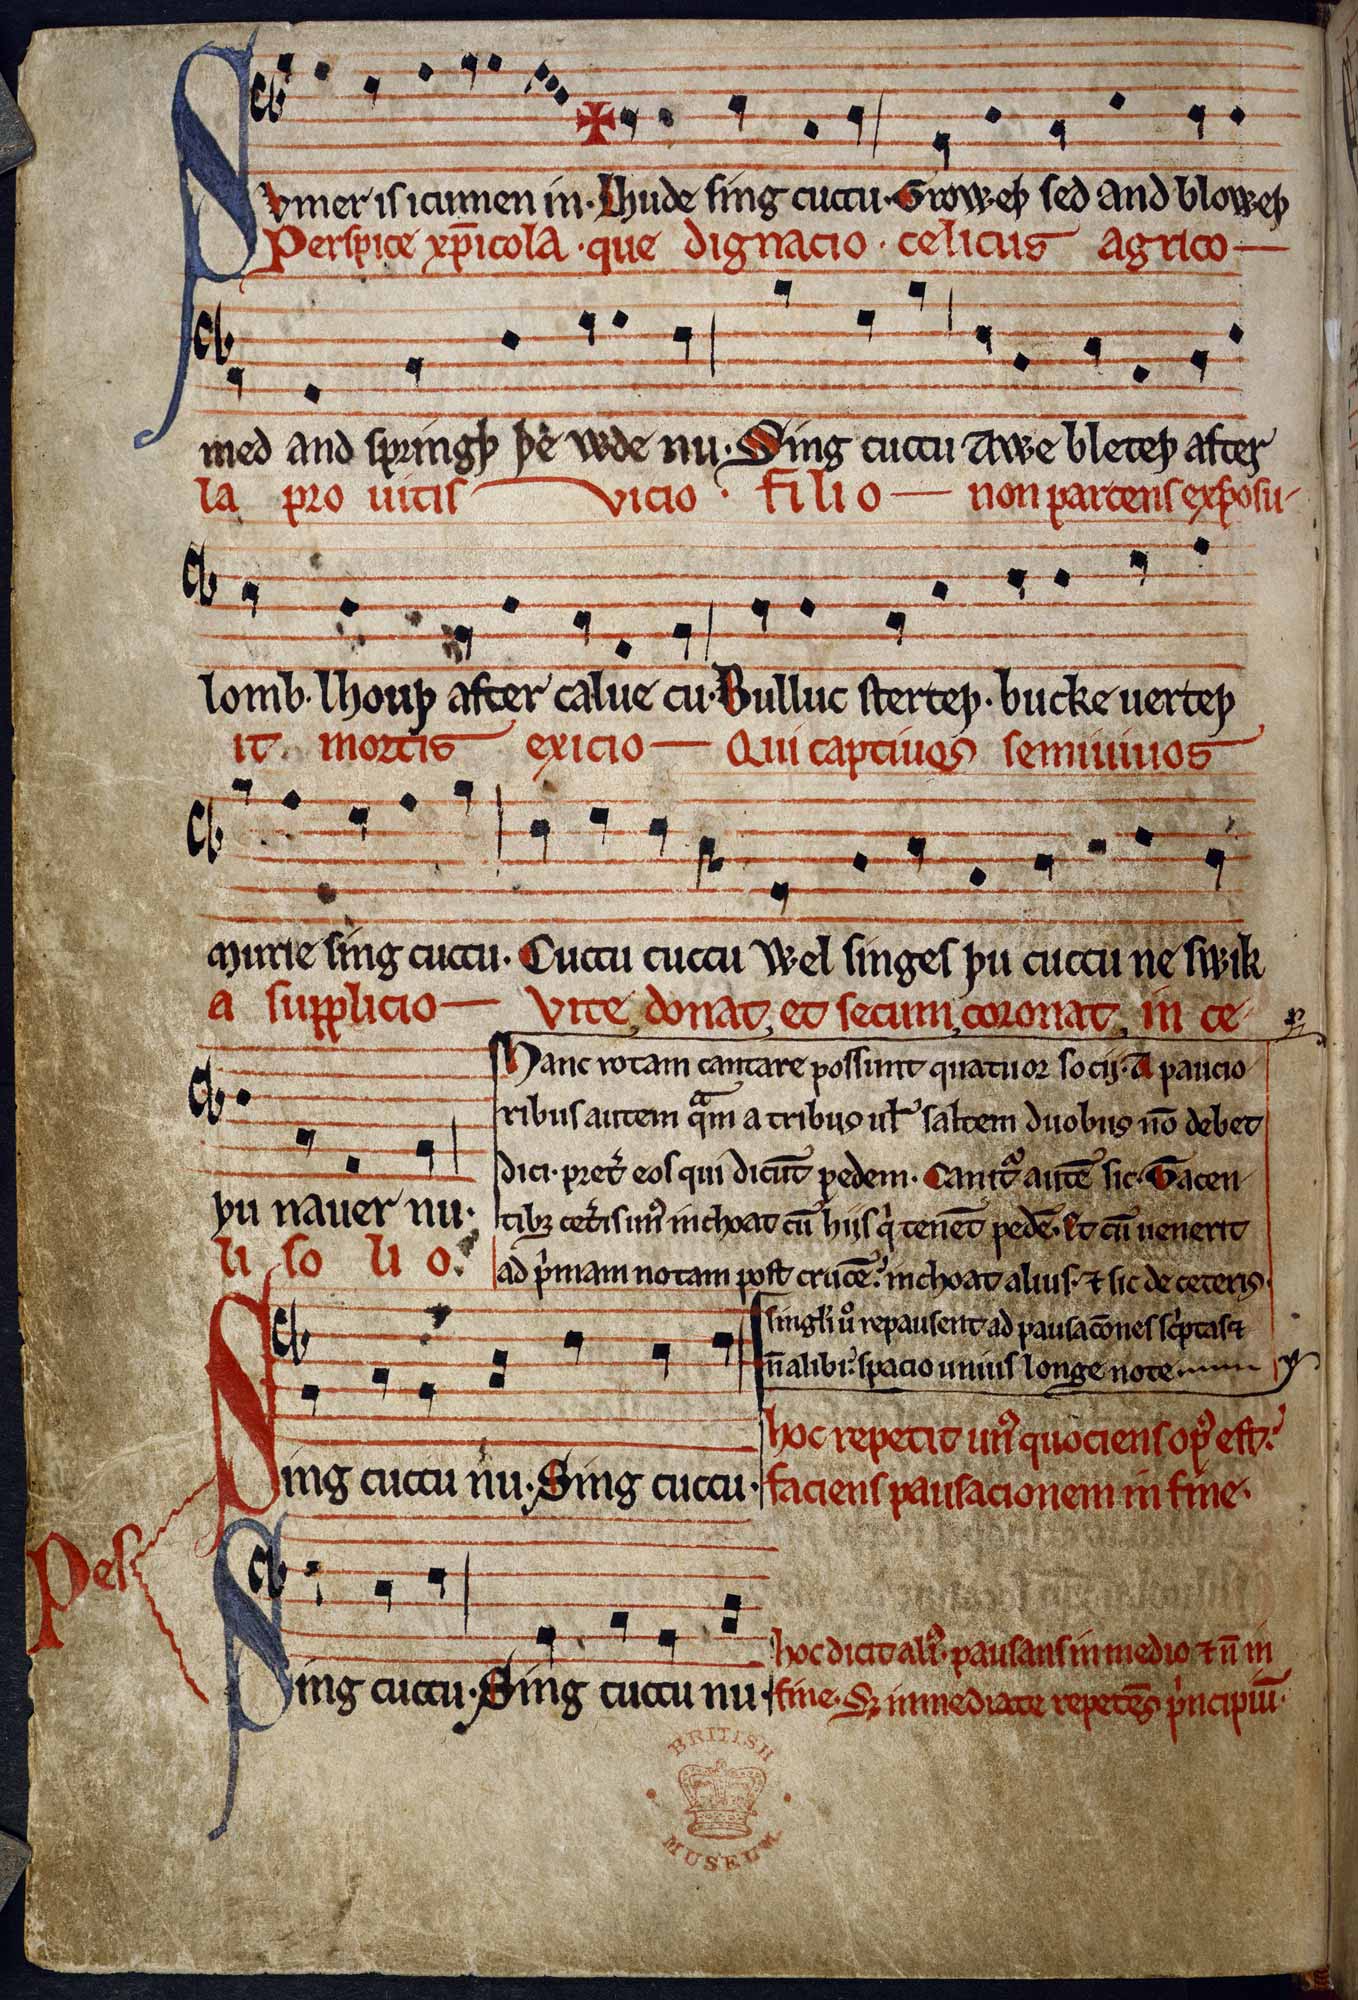 Svmer is icumen in· Lhude sing cuccu· Groweþ sed and bloweþ
Perspice xp̄icola · que dignacio · celicus agrico—
med and springþ þe wde nu· Sing cuccu Awe bleteþ after
la pro uitis vicio · filio — non parcens exposu-
lomb· lhouþ after calue cu· Bulluc sterteþ· bucke uerteþ
it mortis exicio — Qui captiuos semiuiuos
murie sing cuccu· Cuccu cuccu Wel singes þu cuccu ne swik
a supplicio — vite donat, et secum coronat, in ce-
þu nauer nu·
li so li o.
Hanc rotam cantare possunt quatuor socij· A paucio
ribus autem qᵃm a tribus ul̛ saltem duobus nō debet
dici· pret̛ eos qui dicūt pedem· Cantᵒ autē sic· Tacen
tibꝫ cet̛is unꝰ inchoat cū hijs qͥ tenēt pedē· Et cū uenerit
ad pͥmam notam post crucē: inchoat alius· ⁊ sic de ceteris·
singli uͦ repausent ad pausacōnes scͥptas ⁊
ñ alibi: spacio unius longe note
hoc repetit unꝰ quociens opꝰ est:
faciens pausacionem in fine·
Sing cuccu nu· Sing cuccu·
Pes
hoc dicit aliꝰ· pausans in medio ⁊ ñ in
Sing cuccu· Sing cuccu nu·
fine· Sꝫ inmediate repetēs pͥncipiū·
BRITISH
MUSEUM